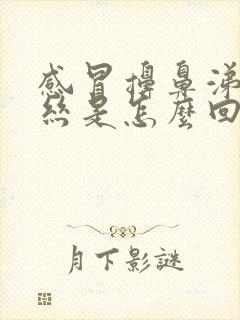 感冒擤鼻涕
絲是怎麼回
月下影謎